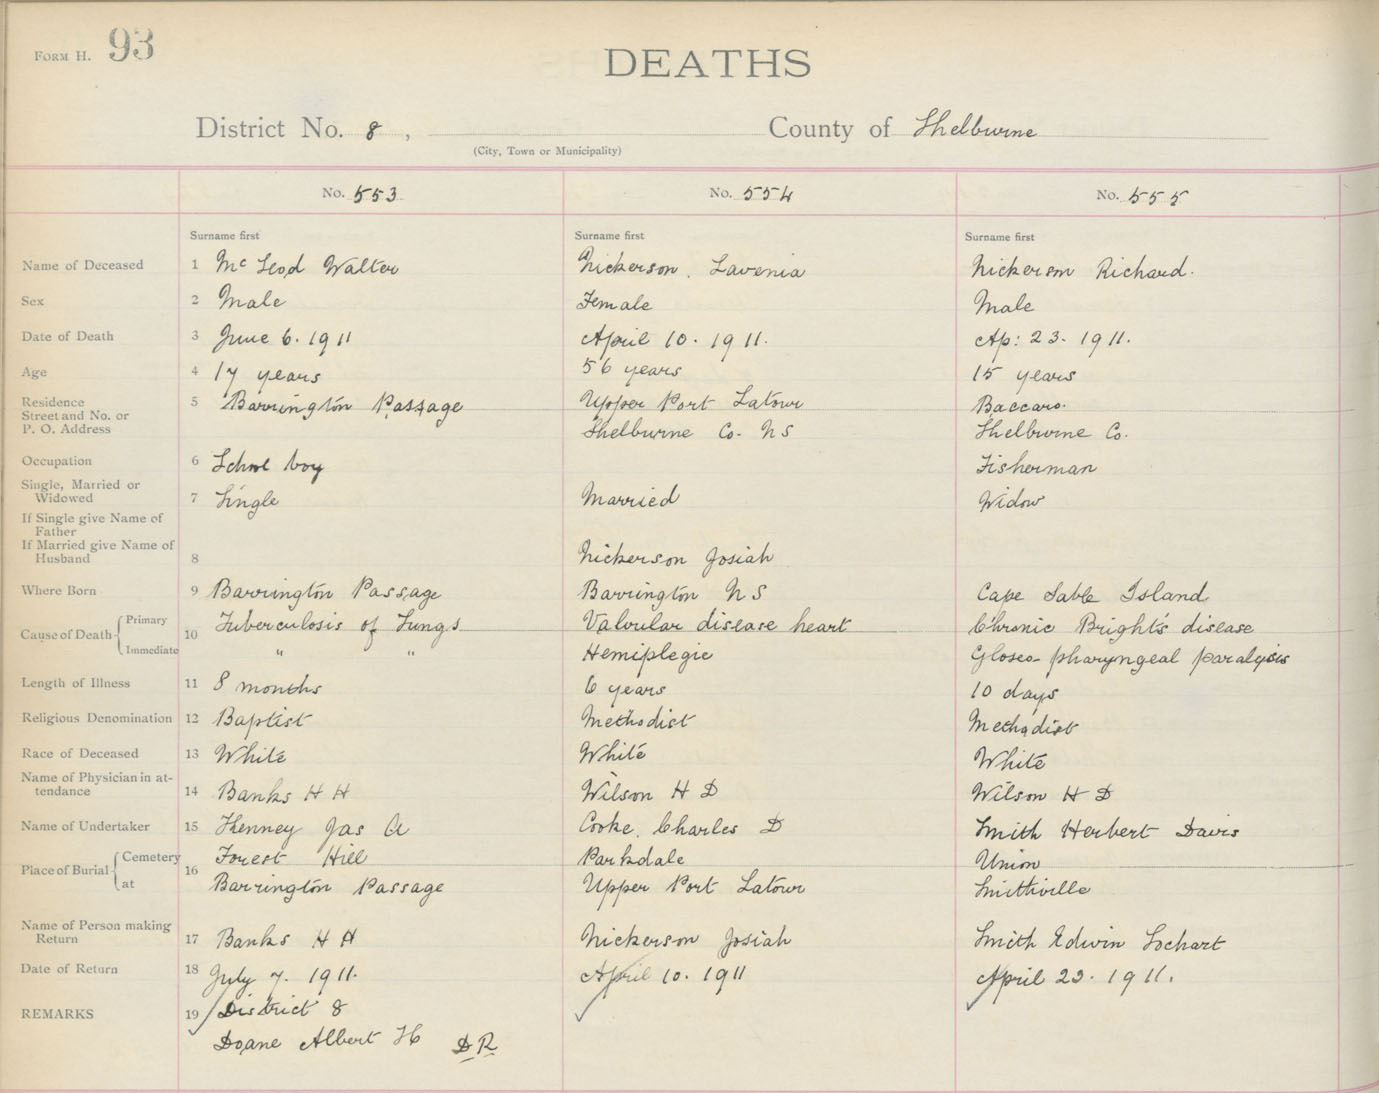 FORM H. 93
DEATHS
District No. 8 , County of Shelburne
(City, Town or Municipality)
No. 553 No. 554 No. 555
Surname first Surname first Surname first
Name of Deceased 1 McLeod Walter Nickerson, Lavenia Nickerson Richard.
Sex 2 Male Female Male
Date of Death 3 June 6. 1911 April 10. 1911. Ap: 23. 1911.
Age 4 17 years 56 years 15 years
Residence 5 Barrington Passage Upper Port Latour Baccaro.
Street and No. or
P. O. Address Shelburne Co. NS Shelburne Co.
Occupation 6 School boy Fisherman
Single, Married or
Widowed 7 Single Married Widow
If Single give Name of
Father
If Married give Name of
Husband 8 Nickerson Josiah
Where Born 9 Barrington Passage Barrington NS Cape Sable Island
Cause of Death Primary 10 Tuberculosis of Lungs Valvular disease heart Chronic Bright's disease
Immediate " " Hemiplegie Glosso pharyngeal paralysis
Length of Illness 11 8 months 6 years 10 days
Religious Denomination 12 Baptist Methodist Methodist
Race of Deceased 13 White White White
Name of Physician in at-
tendance 14 Banks H H Wilson H D Wilson H D
Name of Undertaker 15 Kenney Jas A Cooke, Charles D Smith Herbert Davis
Place of Burial Cemetery 16 Forest Hill Parkdale Union
at Barrington Passage Upper Port Latour Smithville
Name of Person making
Return 17 Banks H H Nickerson Josiah Smith Edwin Lochart
Date of Return 18 July 7. 1911. April 10. 1911 April 23. 1911.
REMARKS 19 District 8
Doane Albert H D R